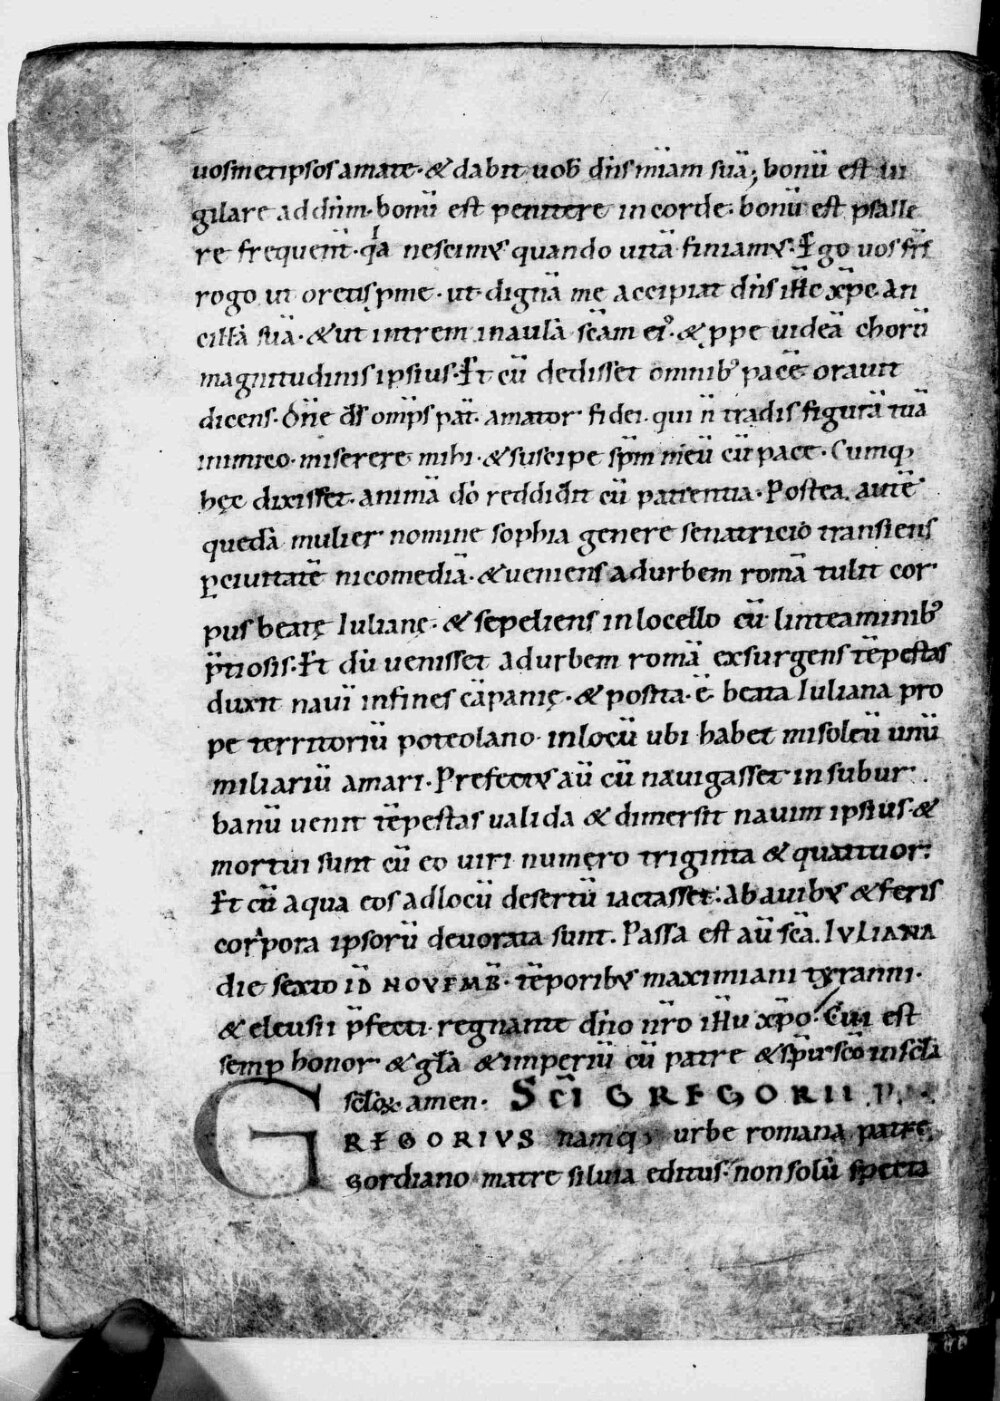 uosmetipsos amate · & dabit uob̄ dn̄s mīam suā; bonū est ui
gilare ad dn̄m · bonū est penitere in corde · bonū est psalle
re frequent̄ · qͥa nescimꝰ quando uitā finiamꝰ · Ego uos fr̄s
rogo ut oretis ꝓ me · ut dignā me accipiat dn̄s ih̄e xp̄e · An
cillā suā · & ut intrem in aulā sc̄am eiꝰ · & ꝓpe uideā chorū
magnitudinis ipsius · Et cū dedisset omnibꝰ pacē orauit
dicens · Dn̄e ds̄ omp̄s pat̄ · amator fidei · qui n̄ tradis figurā tuā
inimico · miserere mihi · & suscipe sp̄m meū cū pace · Cumq;
hęc dixisset · animā dō reddid̄it cū patientia · Postea autē
quedā mulier nomine sophia genere senatricio transiens
ꝑ ciuitatē nicomediā · & ueniens ad urbem romā tulit cor
pus beatę Iulianę · & sepeliens in locello cū linteaminibꝰ
p̄tiosis · Et dū uenisset ad urbem romā exsurgens tēpestas
duxit nauī in fines cāpanię · & posita · ē beata Iuliana pro
pe territoriū poteolano in locū ubi habet misoleū unū
miliariū a mari · Prefectꝰ aū cū nauigasset in subur
banū uenit tēpestas ualida & dimersit nauim ipsius · &
mortui sunt cū eo uiri numero triginta & quattuor ·
Et cū aqua eos ad locū desertū iactasset · ab auibꝰ & feris
corpora ipsorū deuorata sunt · Passa est aū sc̄a · IVLIANA
die sexto ID̄ NOVEMB̄ · tēporibꝰ maximiani tyranni ·
& eleusii p̄fecti · regnante dn̄o nr̄o ih̄u xp̄o · Cui est
semꝑ honor & gl̄a & imperiū cū patre & sp̄u sc̄o in scl̄a
scl̄oꝝ amen · SC̄I GREGORII P
GREGORIVS namq; urbe romana patre
gordiano matre siluia editus · non solū specta